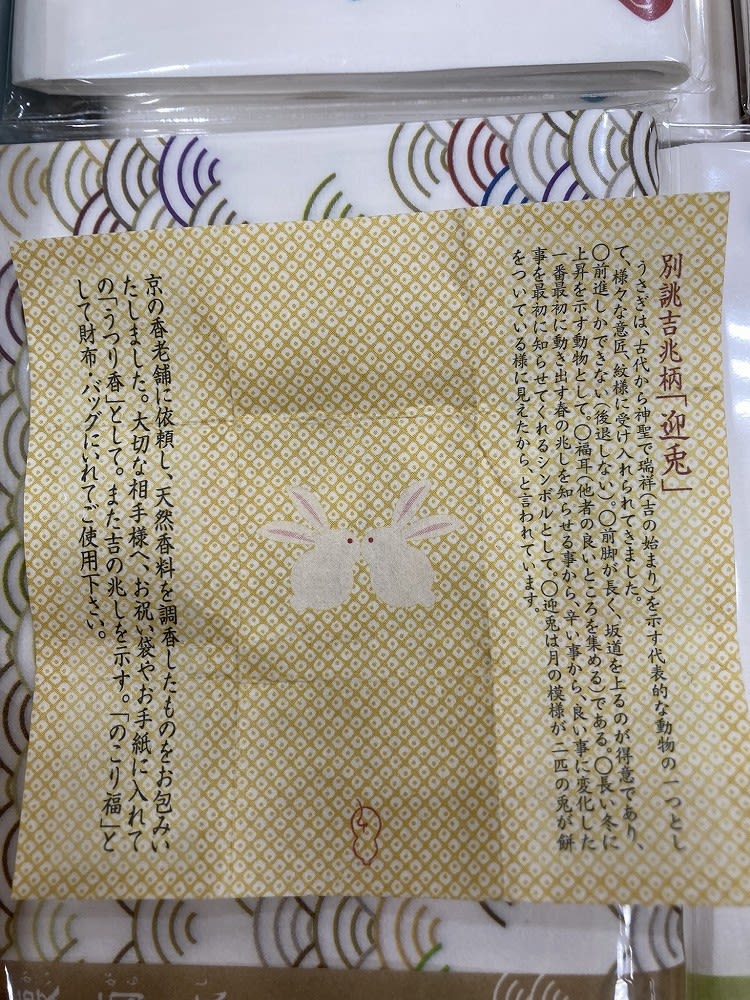 別誂吉兆柄「迎兎」
うさぎは、古代から神聖で瑞祥(吉の始まり)を示す代表的な動物の一つとし
て、様々な意匠、紋様に受け入れられてきました。
〇前進しかできない(後退しない)。〇前脚が長く、坂道を上るのが得意であり、
上昇を示す動物として。〇福耳(他者の良いところを集める)である。〇長い冬に
一番最初に動き出す春の兆しを知らせる事から、辛い事から、良い事に変化した
事を最初に知らせてくれるシンボルとして。〇迎兎は月の模様が、二匹の兎が餅
をついている様に見えたから、と言われています。
京の香老舗に依頼し、天然香料を調香したものをお包みい
たしました。大切な相手様へ、お祝い袋やお手紙に入れて
の「うつり香」として。また吉の兆しを示す。「のこり福」と
して財布・バッグにいれてご使用下さい。